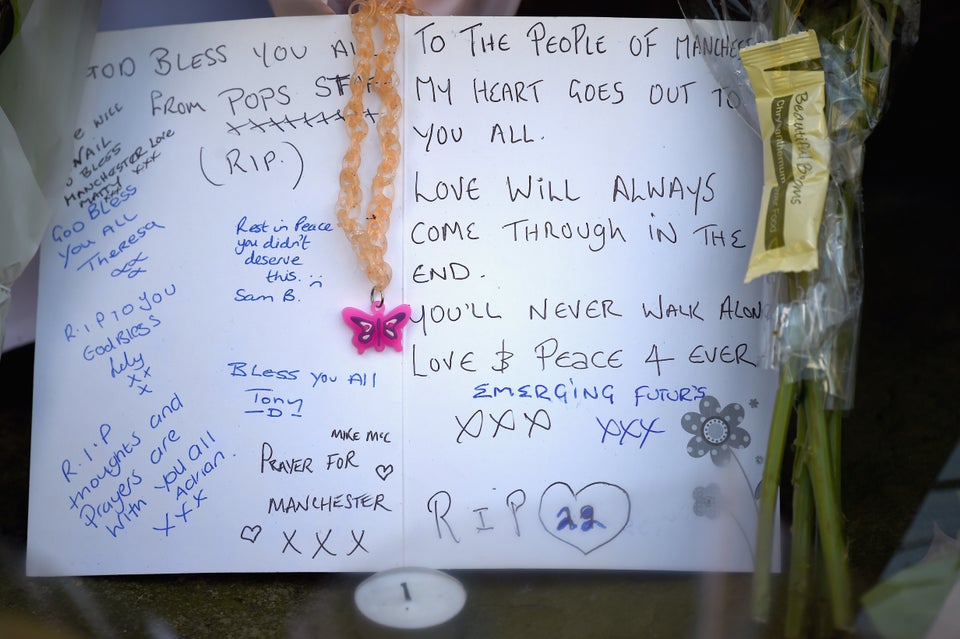 GOD BLESS YOU AL
FROM POPS STAF
(RIP.)
WILL
NAIL
BLESS
MANCHESTER LOVE
MATTY XXX
GOD BLESS
You ALL
Theresa
XX
Rest in Peace
you didn't
deserve
this. :(
Sam B.
R.I.P TO YOU
God Bless
Lily
XX
X
Bless you All
Tony
-D-
R.I.P
thoughts and
Prayers are
with you all
Adrian.
XXX
MIKE MCC
PRAYER FOR ♡
MANCHESTER
♡ XXX
TO THE PEOPLE OF MANCHES
MY HEART GOES OUT TO
YOU ALL.
LOVE WILL ALWAYS
COME THROUGH IN THE
END.
YOU'LL NEVER WALK ALON
LOVE & PEACE 4 EVER
EMERGING FUTURS
XXX XXX
R I P 22
Beautiful Blooms
Chrysanthemum Flower Food
1